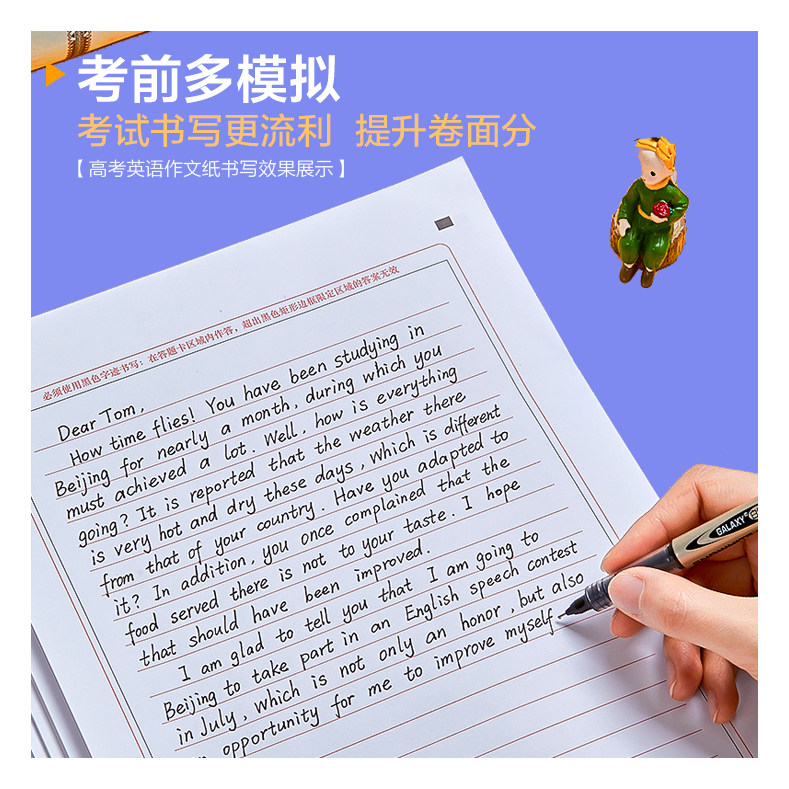 考前多模拟
考试书写更流利 提升卷面分
【高考英语作文纸书写效果展示】
必须使用黑色字迹书写；在答题卡区域内作答，超出黑色矩形边框限定区域的答案无效
Dear Tom,
How time flies! You have been studying in
Beijing for nearly a month, during which you
must achieved a lot. Well, how is everything
going? It is reported that the weather there
is very hot and dry these days, which is different
from that of your country. Have you adapted to
it? In addition, you once complained that the
food served there is not to your taste. I hope
that should have been improved.
I am glad to tell you that I am going to
Beijing to take part in an English speech contest
in July, which is not only an honor, but also
opportunity for me to improve myself.
GALAXY